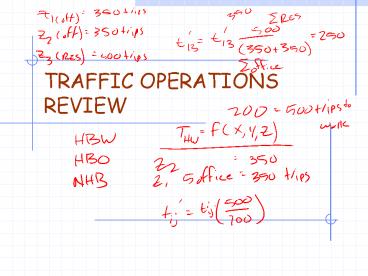 Z1(off) = 350 trips
Z2(off) = 350 trips
Z3(Res) = 400 trips
350 ΣRes
t'13 = t'13 500/(350+350) = 250
Σoffice
TRAFFIC OPERATIONS
REVIEW
200 = 500 trips to
work
HBW
HBO
NHB
THW = f(x,y,z)
Z2 = 350
Z1 office = 350 trips
t'ij = tij(500/700)